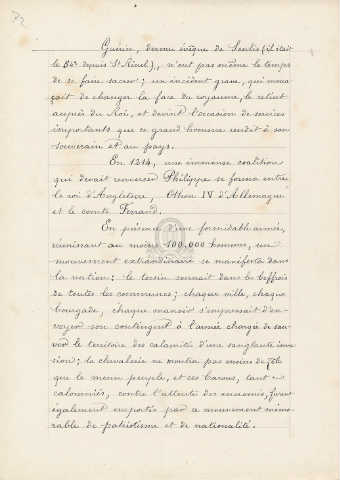 Guérin, devenu évêque de Senlis (il était
le 54e depuis St Rieul), n'eut pas même le temps
de se faire sacrer; un incident grave, qui mena
çait de changer la face du royaume, le retint
auprès du Roi, et devint l'occasion de services
importants que ce grand homme rendit à son
souverain et au pays.
En 1214, une immense coalition
qui devait renverser Philippe se forma entre
le roi d'Angleterre, Othon IV d'Allemagne
et le comte Ferrand.
En présence d'une formidable armée,
réunissant au moins 100,000 hommes, un
mouvement extraordinaire se manifesta dans
la nation; le tocsin sonnait dans les beffrois
de toutes les communes; chaque ville, chaque
bourgade, chaque manoir s'empressait d'en-
voyer son contingent à l'armée chargée de sau-
ver le territoire des calamités d'une sanglante inva
sion; la chevalerie ne montra pas moins de zèle
que le menu peuple, et ces Barons, tant
calomniés, contre l'attente des ennemis, furent
également emportés par ce mouvement mémo-
rable de patriotisme et de nationalité.